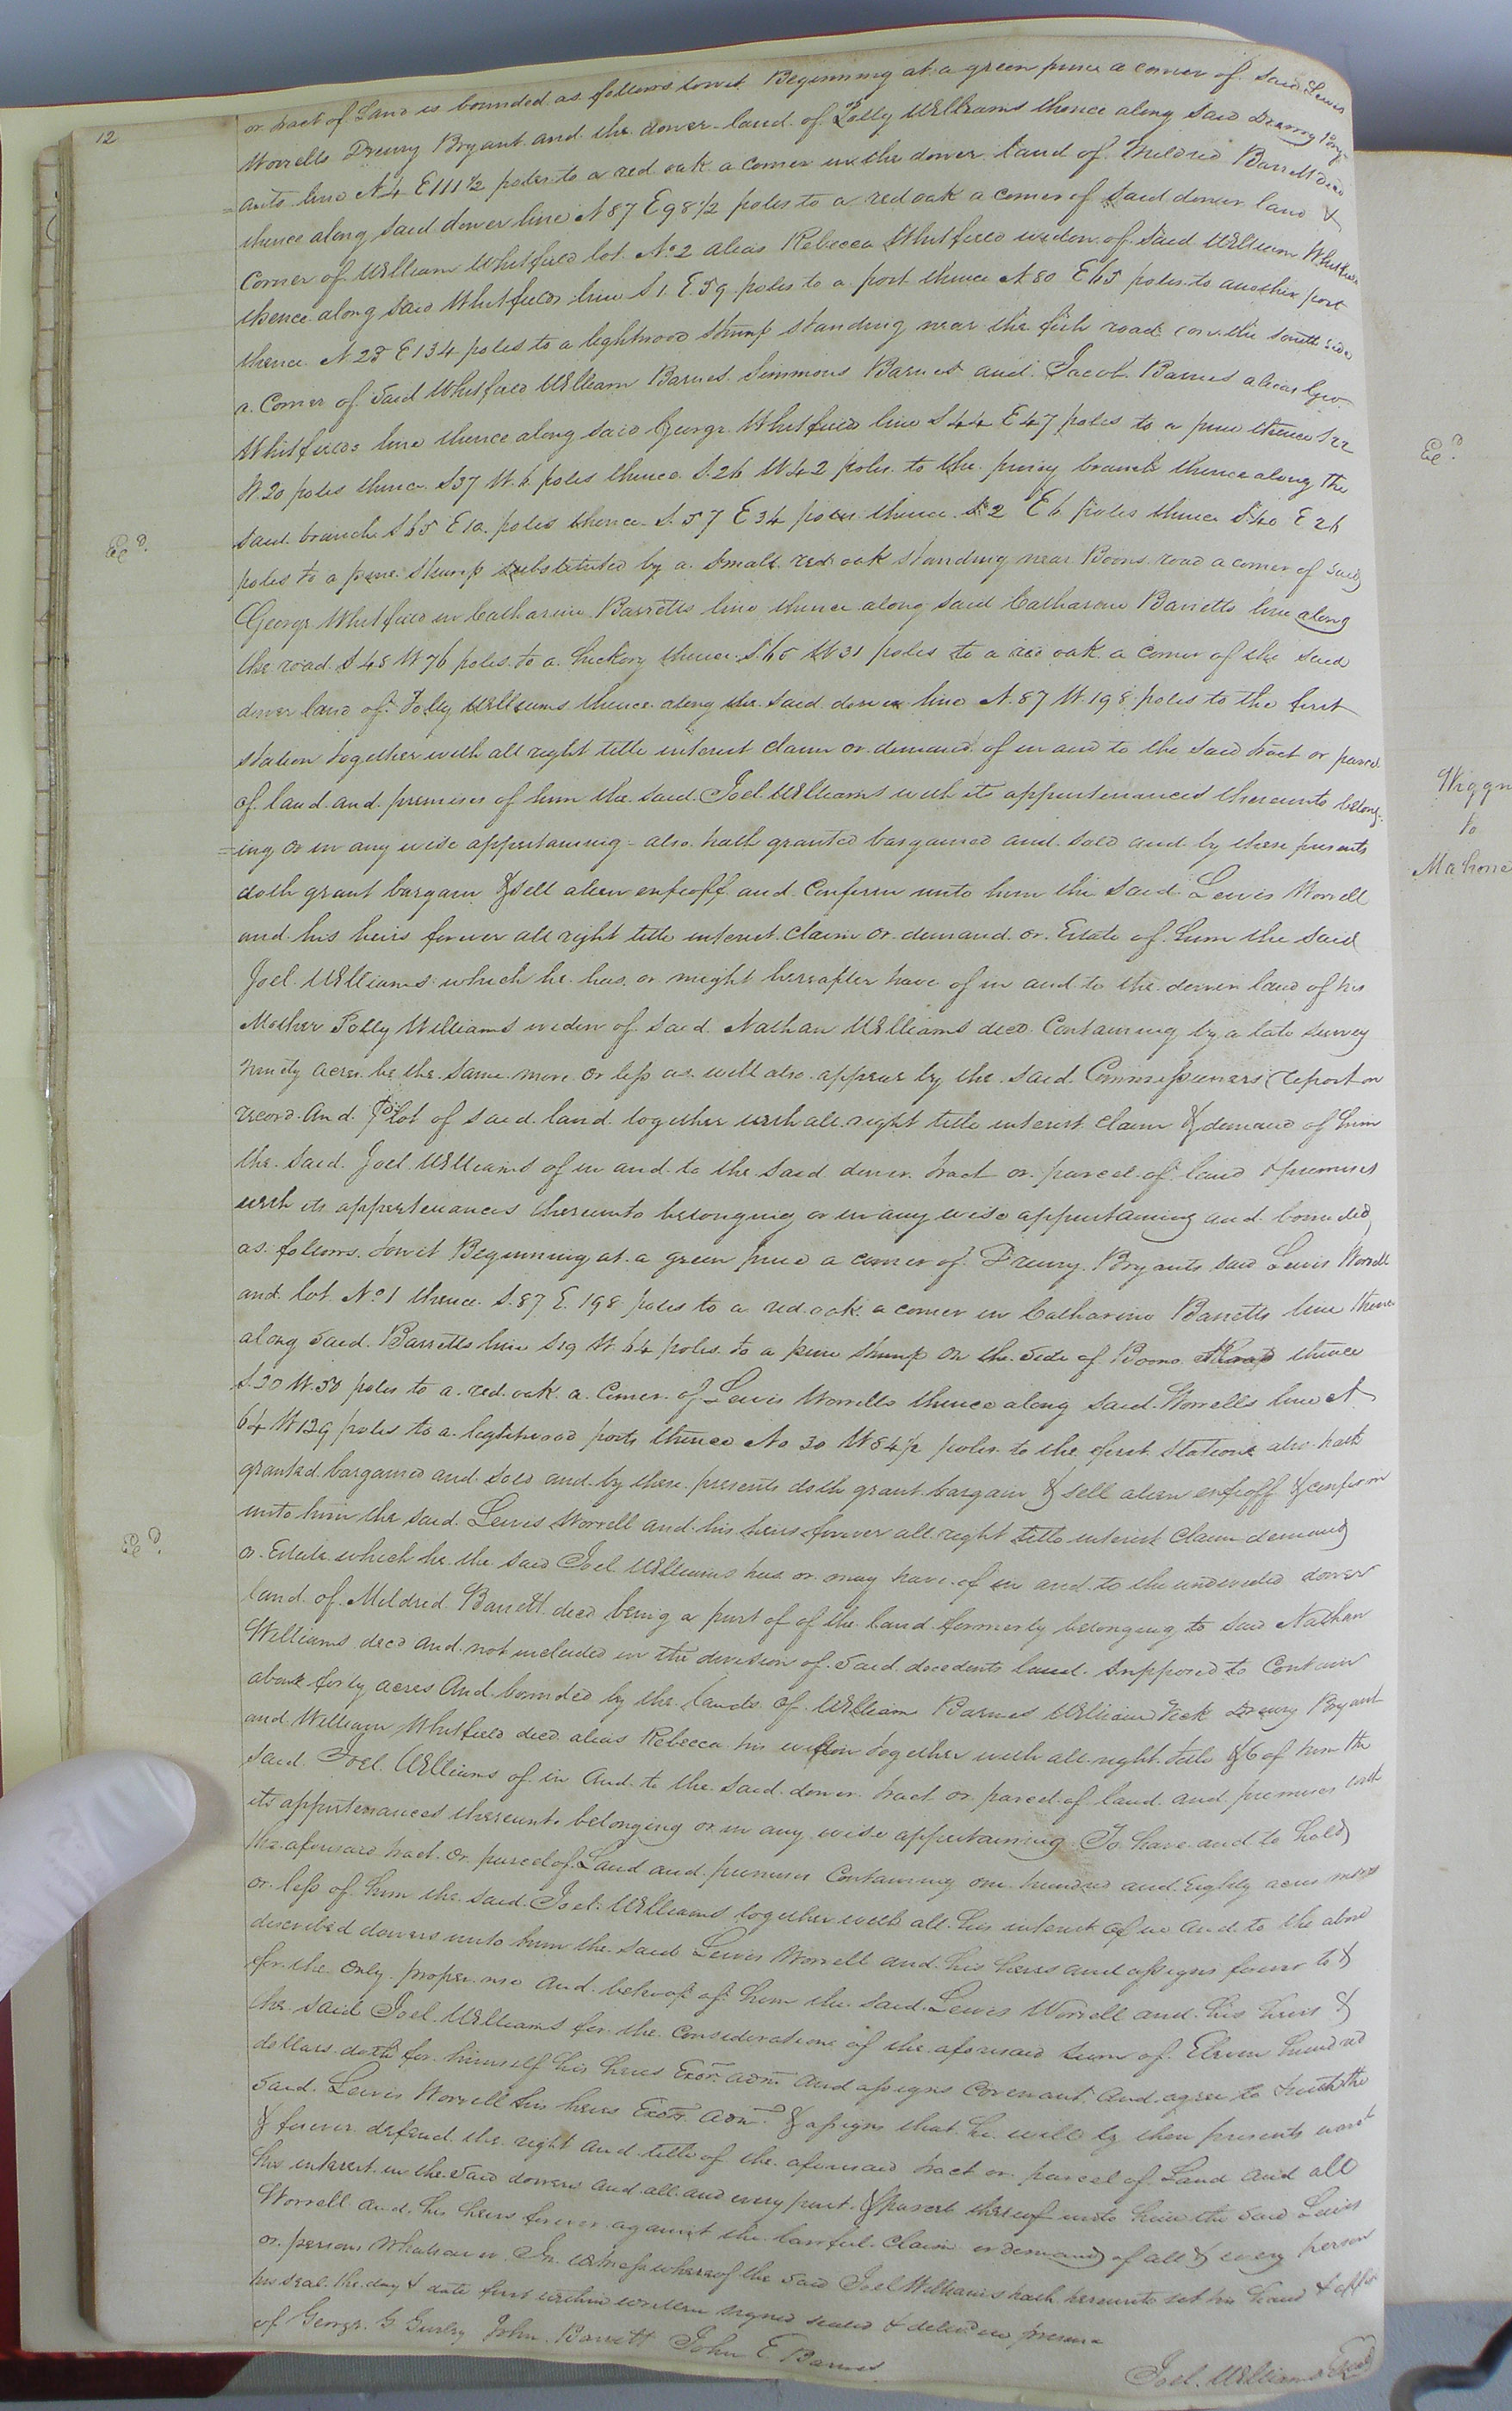 12
or tract of Land is bounded as follows towit Beginning at a green pine a corner of said Lewis
Worrells Drewry Bryant and the dower land of Polly Williams thence along said Drewry Bry
=ants line N 4 E 111 1/2 poles to a red oak a corner in the dower land of Mildred Barrett decd
thence along said dower line N 87 E 98 1/2 poles to a red oak a corner of said dower land &
Corner of William Whitfield lot No 2 alias Rebecca Whitfield widow of said William Whitfield
thence along said Whitfields line S 1 E 59 poles to a post thence N 80 E 65 poles to another post
thence N 25 E 134 poles to a lightwood stump standing near the fish road on the south side
a Corner of Said Whitfield William Barnes Simmons Barnes and Jacob Barnes alias Geo.
Whitfields line thence along said George Whitfield line S 44 E 47 poles to a pine thence S 22
W. 20 poles thence S 37 W. 6 poles thence S. 26 W 42 poles to the piney branch thence along the
said branch S 65 E 10 poles thence S. 57 E 34 poles thence S. 2 E 6 poles thence S 40 E 26
poles to a pine Stump substituted by a small red oak standing near Boons road a corner of said
George Whitfield in Catharine Barretts line thence along said Catharine Barretts line along
the road S 48 W 76 poles to a hickory thence S. 65 W 31 poles to a red oak a corner of the said
dower land of Polly Williams thence along the said dower line N. 87 W. 198 poles to the first
station together with all right title interest claim or demand of in and to the said tract or parcel
of land and premises of him the said Joel Williams with its appurtenances thereunto belong-
=ing or in any wise appertaining - also hath granted bargained and sold and by these presents
doth grant bargain & sell alien enfeoff and Confirm unto him the said Lewis Worrell
and his heirs forever all right title interest Claim or demand or Estate of him the said
Joel Williams which he has or might hereafter have of in and to the dower land of his
Mother Polly Williams widow of said Nathan Williams decd. Containing by a late survey
ninety acres be the same more or less as will also appear by the said Commissioners report on
record And Plot of said land together with all right title interest claim & demand of him
the said Joel Williams of in and to the said dower tract or parcel of land & premises
with its appertenances thereunto belonging or in any wise appurtaining and bounded
as follows towit Beginning at a green pine a corner of Drewry Bryants said Lewis Worrell
and lot No 1 thence S. 87 E. 198 poles to a red oak a corner in Catharine Barretts line thence
along said Barretts line S 19 W 64 poles to a pine stump on the side of Boons thence
S. 20 W. 50 poles to a red oak a Corner of Lewis Worrells thence along said Worrells line N
64 W 129 poles to a lightwood posts thence No 30 W 54 1/2 poles to the first station also hath
granted bargained and sold and by these presents doth grant bargain & sell alien enfeoff & confirm
unto him the said Lewis Worrell and his heirs forever all right title interest Claim demand
or Estate which he the said Joel Williams has or may have of in and to the undivided dower
land of Mildred Barrett decd being a part of of the land formerly belonging to said Nathan
Williams decd and not included in the division of said decedents land supposed to Contain
about forty acres And bounded by the lands of William Barnes William Vick Drewry Bryant
and William Whitfield decd alias Rebecca his widow together with all right title &c of him the
said Joel Williams of in and to the said dower tract or parcel of land and premises with
its appurtenances thereunto belonging or in any wise appertaining To have and to hold
the aforesaid tract or parcel of Land and premises Containing one hundred and Eighty acres more
or less of him the said Joel Williams together with all his interest of in and to the above
described dowers unto him the said Lewis Worrell and his heirs and assigns forever to &
for the only proper use and behoof of him the said Lewis Worrell and his heirs &
the said Joel Williams for the Consideration of the aforesaid sum of Eleven hundred
dollars doth for himself his heirs Exor. adm. and assigns Covenant and agree to & with the
said Lewis Worrell his heirs Exor. adm. & assigns that he will by these presents warrt
& forever defend the right and title of the aforesaid tract or parcel of Land and all
his interest in the said dowers and all and every part & parcel thereof unto him the said Lewis
Worrell and his heirs forever against the lawful Claim or demand of all & every person
or persons Whatsoever In witness whereof the said Joel Williams hath hereunto set his hand & affix
his seal the day & date first within written signed sealed & delivd in presence
of George G Gurley John Barrett John E Barnes
Joel Williams Seal
Ee.d
Ee.d
Ee.d
Wiggn
to
Mahone